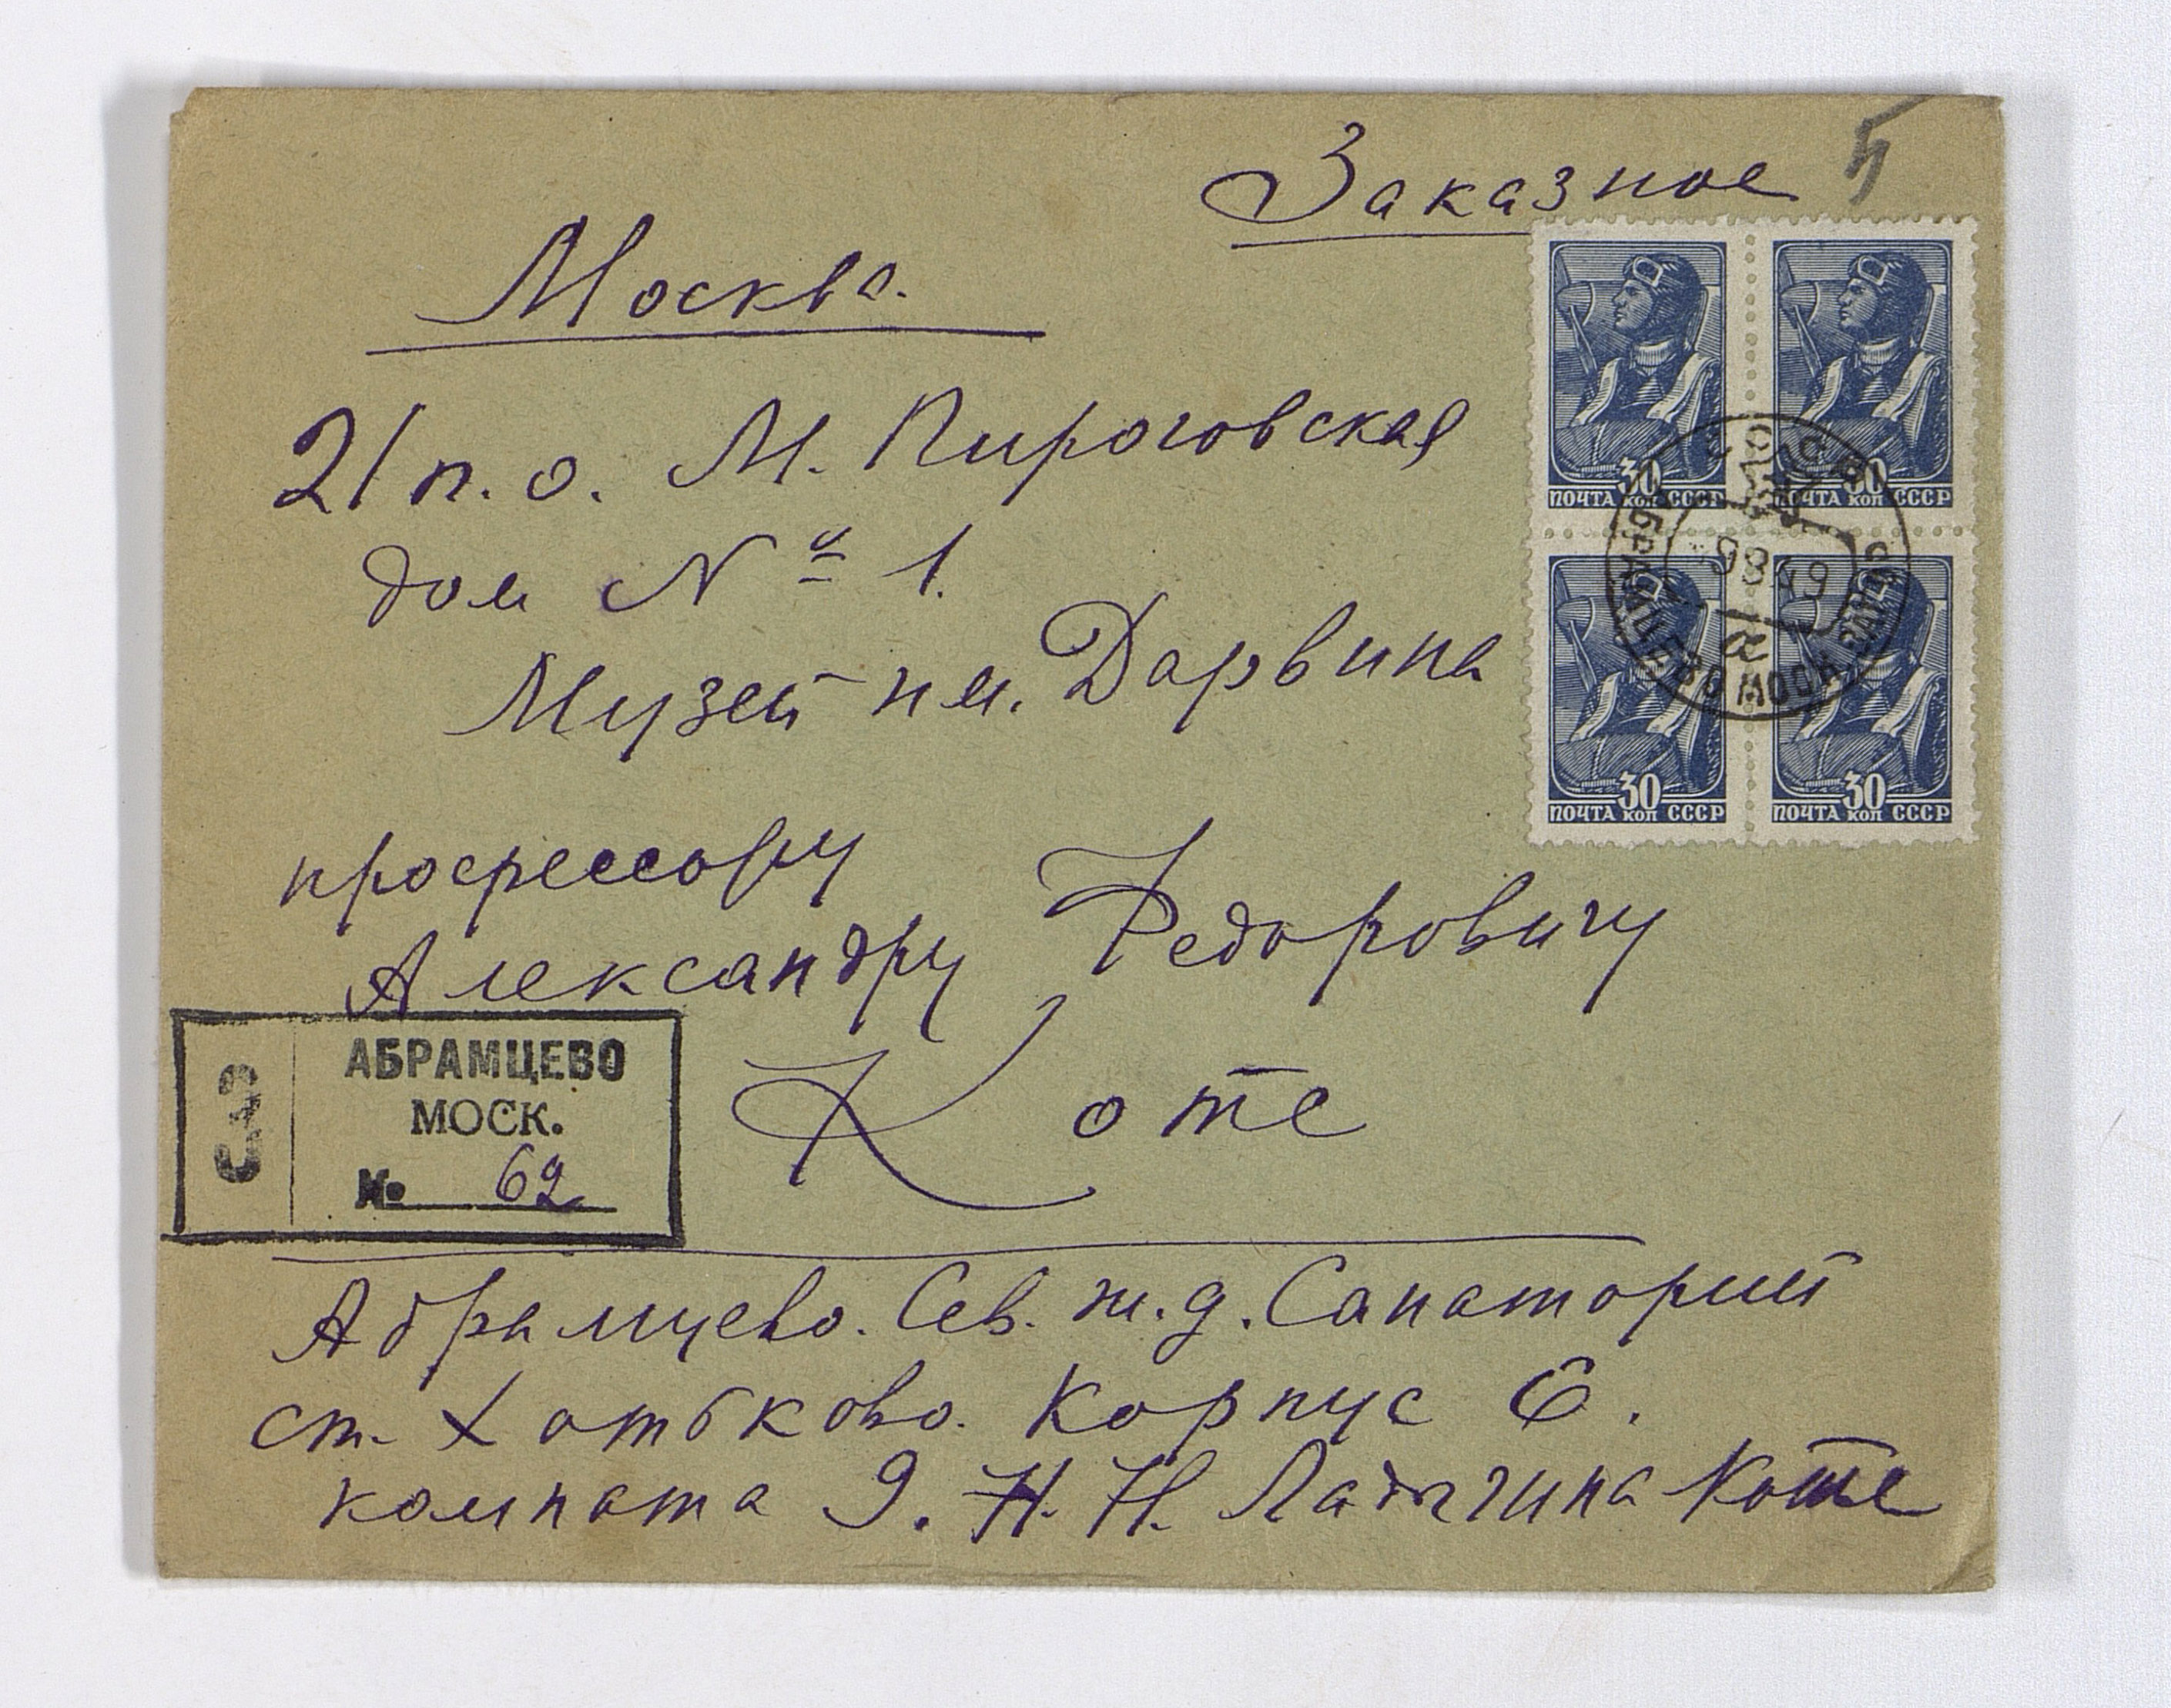 Заказное
5
Москва.
21 п.о. М. Пироговская
дом № 1.
Музей им. Дарвина
30 30
ПОЧТА КОП СССР ПОЧТА КОП СССР
30 30
ПОЧТА КОП СССР ПОЧТА КОП СССР
АБРАМЦЕВО МОСК.
профессору
Александру Федоровичу
Котс
З
АБРАМЦЕВО
МОСК.
№ 62
Абрамцево. Сев. ж.д. Санаторий
ст. Хотьково. Корпус 6.
комната 9. Н. Н. Ладыгина Котс